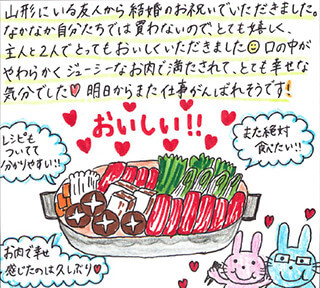 山形にいる友人から結婚のお祝いでいただきました。
なかなか自分たちでは買わないので、とても嬉しく、
主人と2人でとってもおいしくいただきました 口の中が
やわらかくジューシーなお肉で満たされて、とても幸せな
気分でした♥ 明日からまた仕事がんばれそうです!
おいしい!!
レシピも
ついてて
分かりやすい!!
また絶対
食べたい!!
お肉で幸せ
感じたのは久しぶり♥